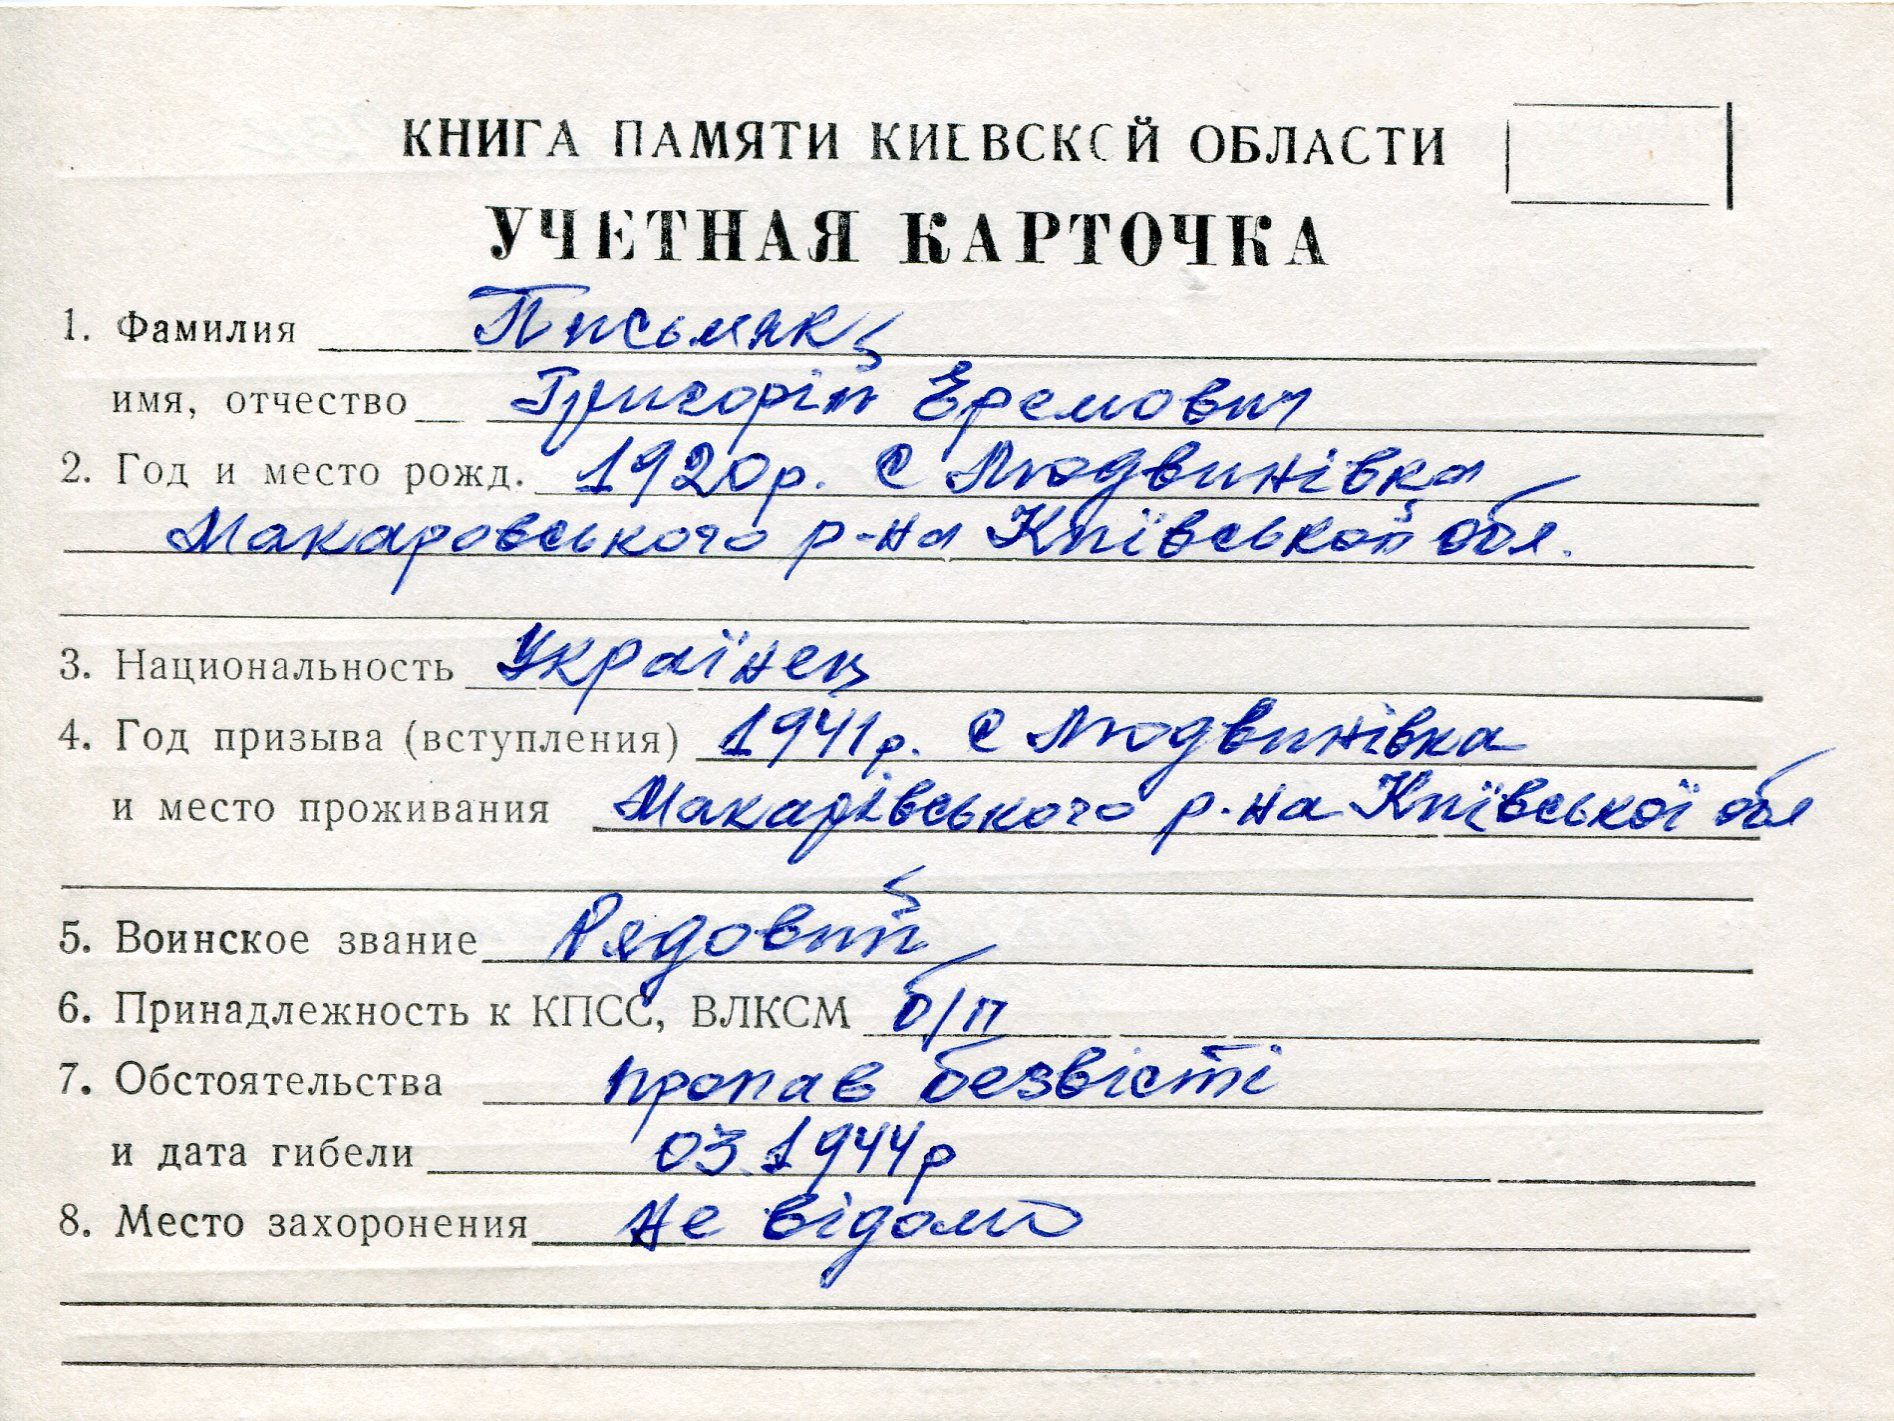 КНИГА ПАМЯТИ КИЕВСКОЙ ОБЛАСТИ
УЧЕТНАЯ КАРТОЧКА
1. Фамилия Письмяк
имя, отчество Григорій Еремович
2. Год и место рожд. 1920р. с Людвинівка
Макаровського р-на Київської обл.
3. Национальность Українец
4. Год призыва (вступления) 1941р. с Людвинівка
и место проживания Макарівського р-на Київської обл
5. Воинское звание Рядовий
6. Принадлежность к КПСС, ВЛКСМ б/п
7. Обстоятельства пропав безвісті
и дата гибели 03.1944р
8. Место захоронения не відомо